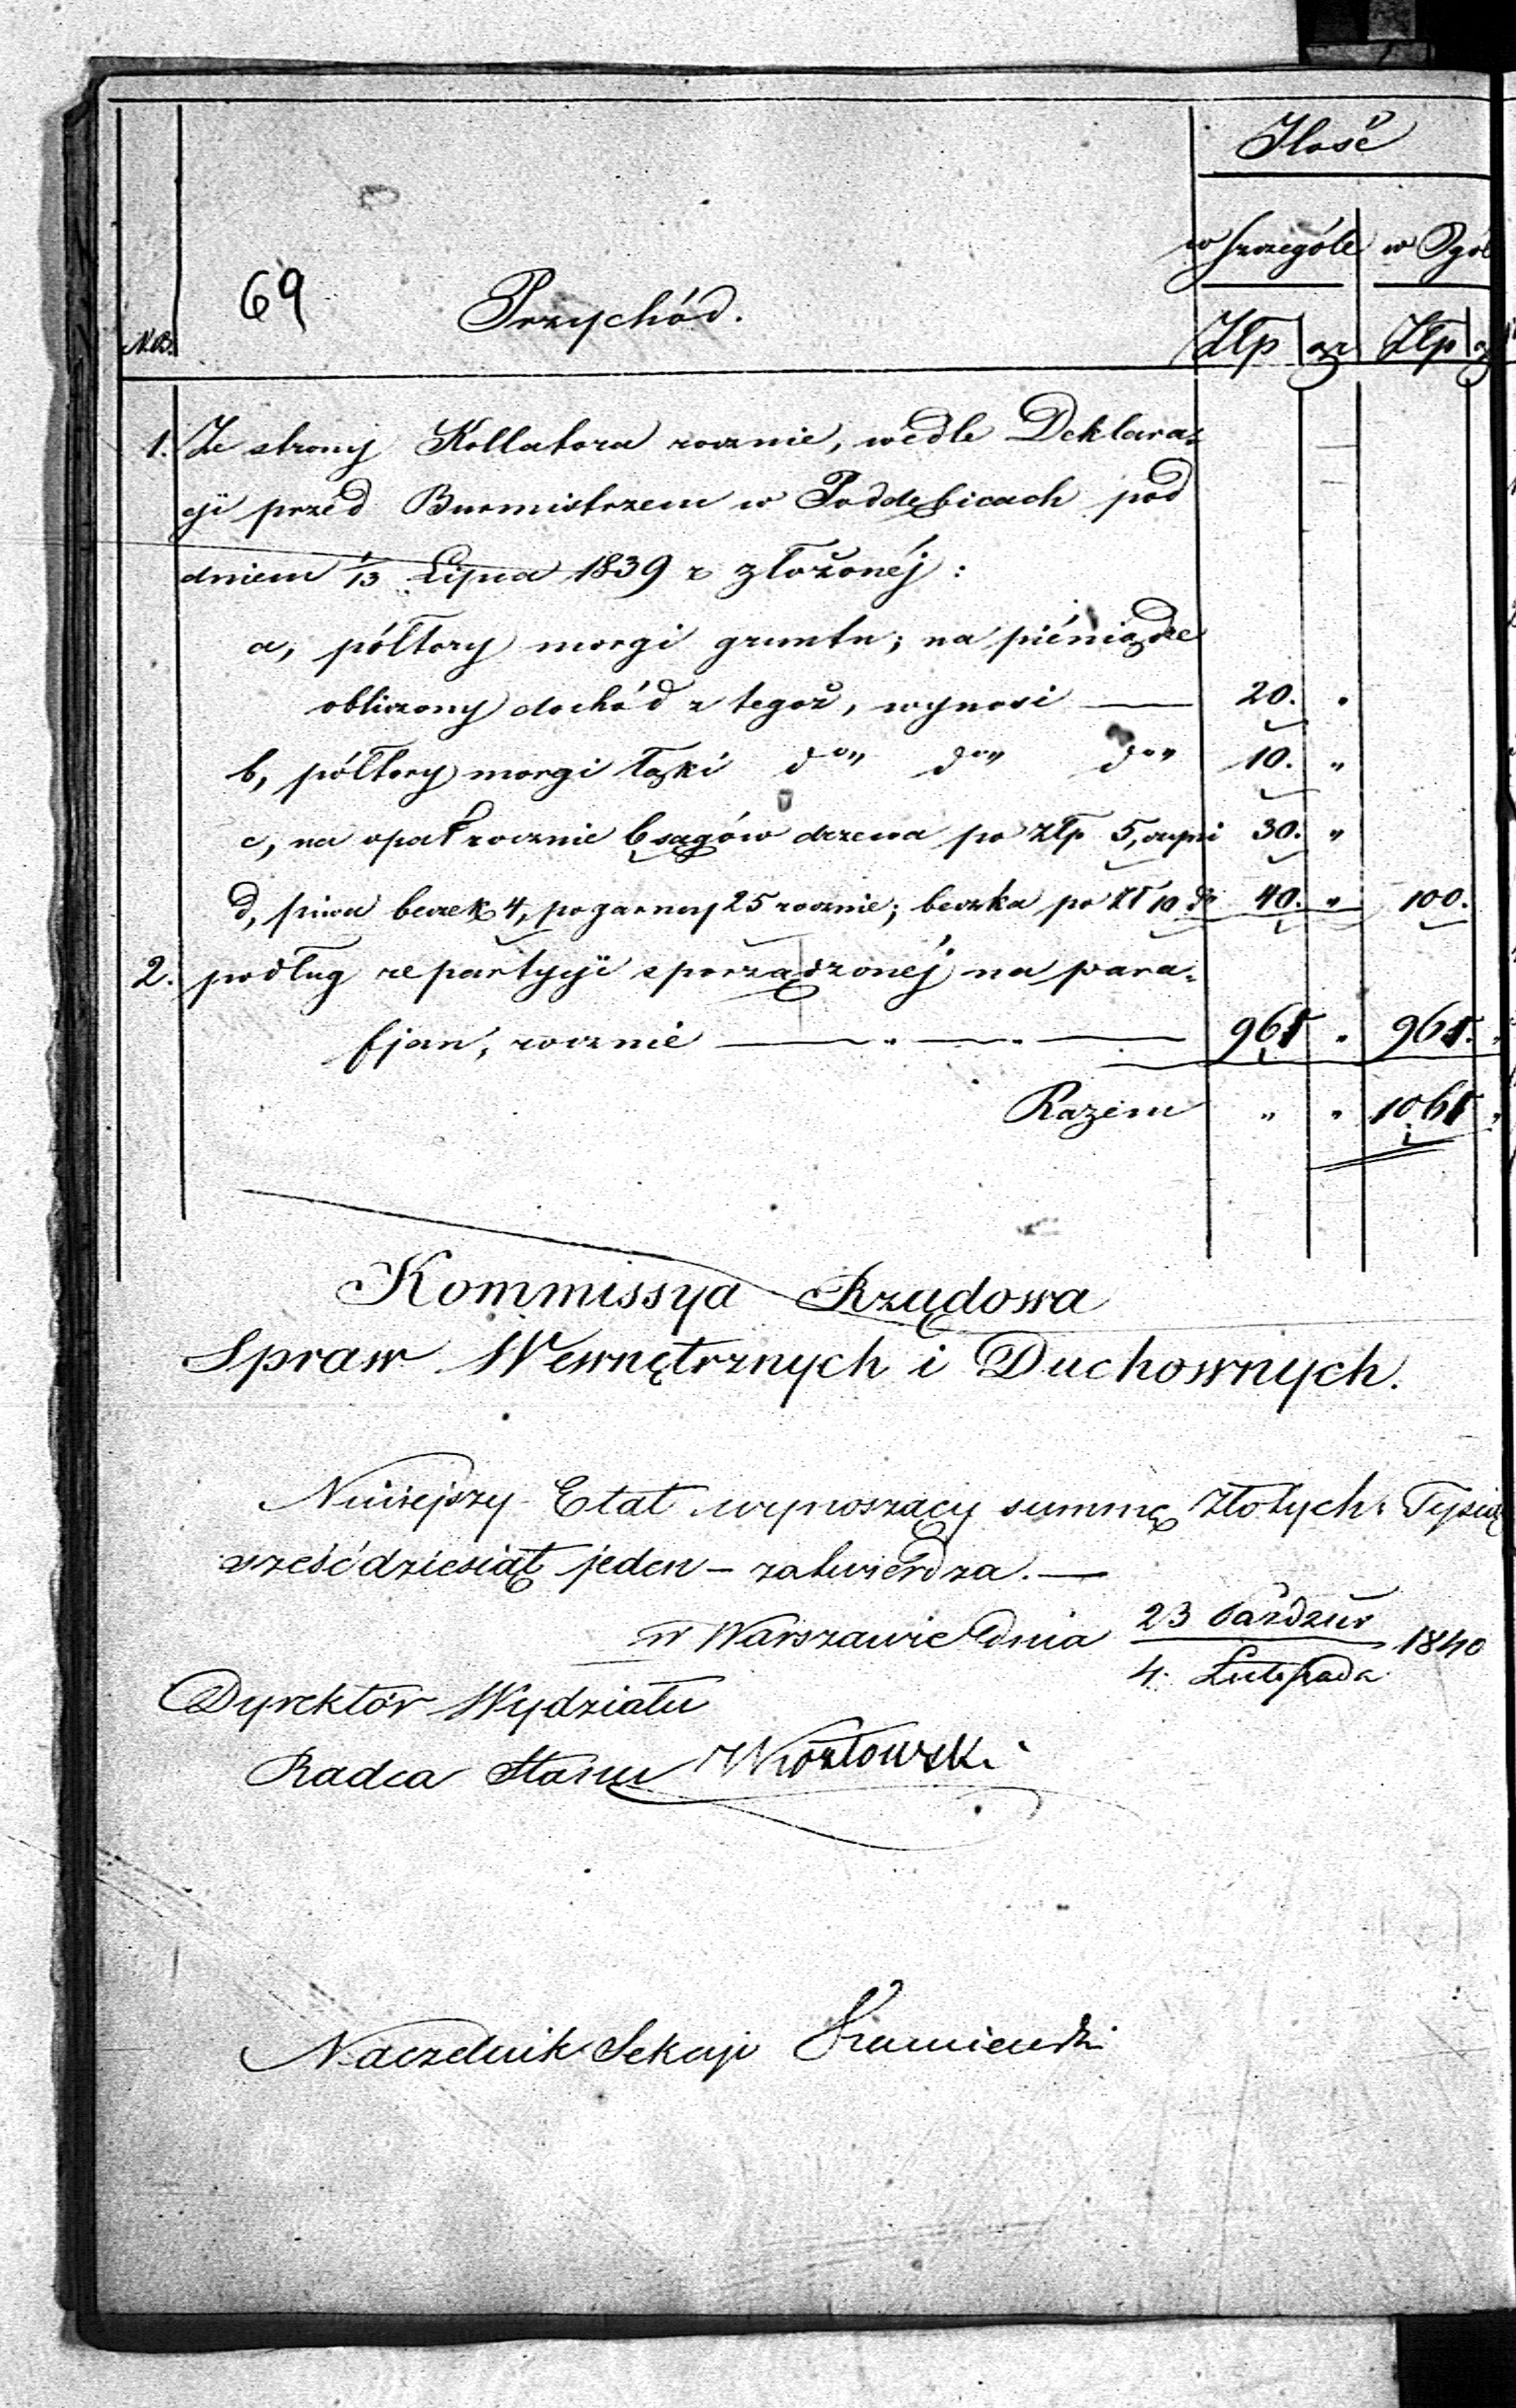 Ilość
w szczególe w Ogól
69 Przychód.
N.B. Złp gr Złp g
1. Ze strony Kollatora rocznie, wedle Deklara-
cji przed Burmistrzem w Poddębicach pod
dniem 1/13 Lipca 1839 r złożonéj:
a, półtory morgi gruntu; na piéniądze
obliczony dochód z tegoż, wynosi — 20. "
b, półtory morgi łąki do" do" do" 10. "
c, na opał rocznie 6 sągów drzewa po złp 5, czyni 30. "
d, piwa beczek 4, po garncy 25 rocznie; beczka po zł 10 do 40. " 100.
2. podług repartycji sporządzonéj na para-
fjan, rocznie — " — " — 961 " 961. "
Razem " " 1061 "
Kommissya Rządowa
Spraw Wewnętrznych i Duchownych.
Niniejszy Etat wynoszący summę złotych: Tysią
sześćdziesiąt jeden – zatwierdza. —
w Warszawie dnia 23 Paździer / 4. Listopada 1840
Dyrektór Wydziału
Radca Stanu Kozłowski
Naczelnik Sekcji